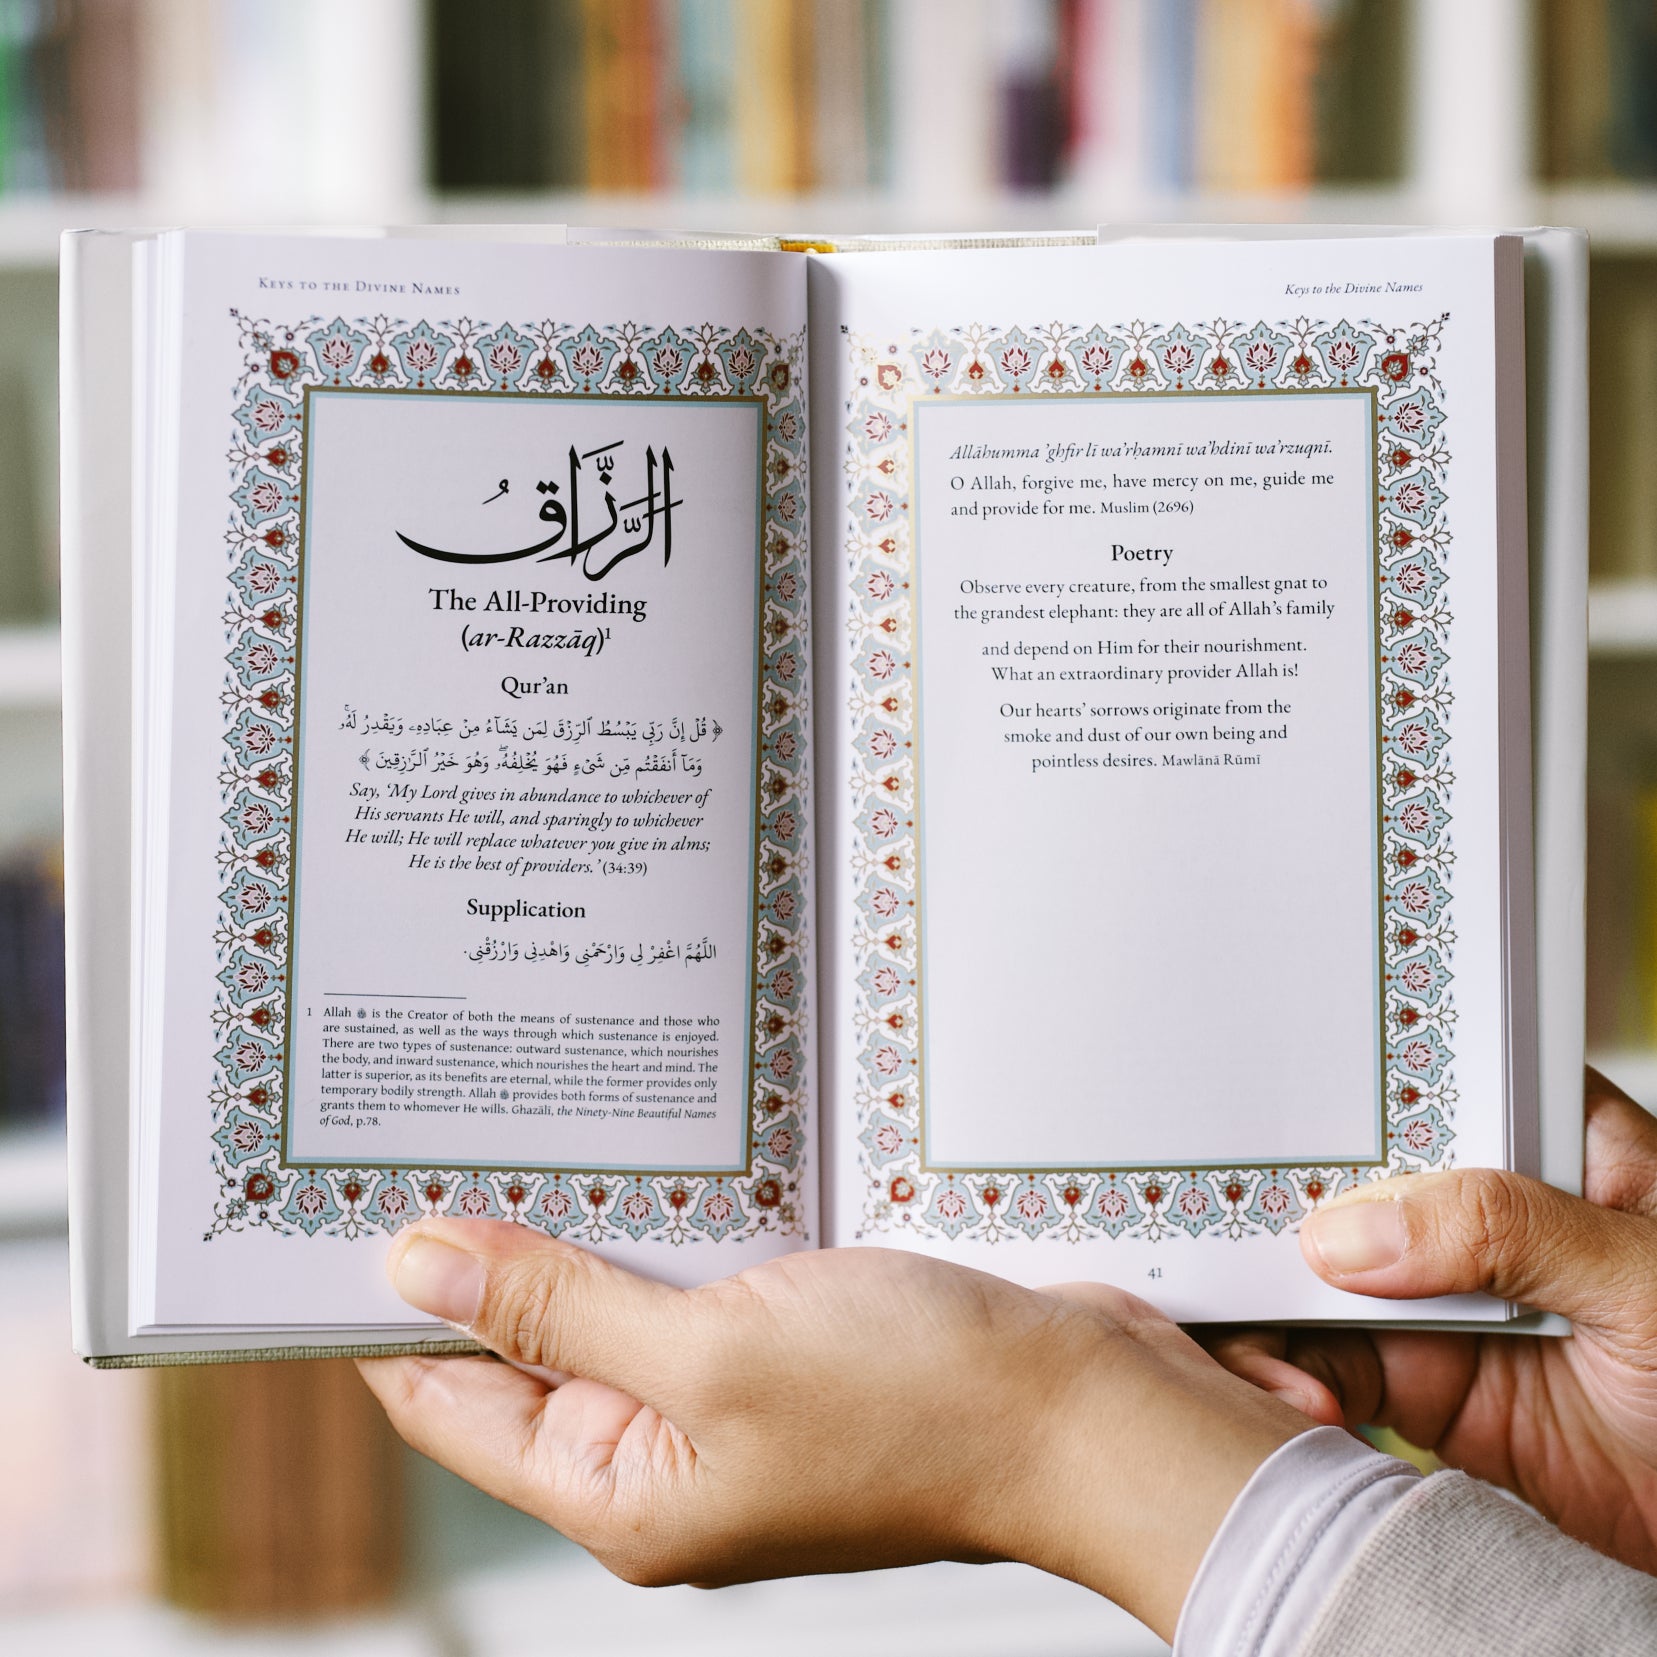 KEYS TO THE DIVINE NAMES
الرَّزَّاقُ
The All-Providing
(ar-Razzāq)¹
Qur’an
﴿ قُلْ إِنَّ رَبِّى يَبْسُطُ ٱلرِّزْقَ لِمَن يَشَآءُ مِنْ عِبَادِهِۦ وَيَقْدِرُ لَهُۥۚ
وَمَآ أَنفَقْتُم مِّن شَىْءٍ فَهُوَ يُخْلِفُهُۥۖ وَهُوَ خَيْرُ ٱلرَّٰزِقِينَ ﴾
Say, ‘My Lord gives in abundance to whichever of
His servants He will, and sparingly to whichever
He will; He will replace whatever you give in alms;
He is the best of providers.’ (34:39)
Supplication
اللَّهُمَّ اغْفِرْ لِي وَارْحَمْنِي وَاهْدِنِي وَارْزُقْنِي.
1 Allah ﷻ is the Creator of both the means of sustenance and those who
are sustained, as well as the ways through which sustenance is enjoyed.
There are two types of sustenance: outward sustenance, which nourishes
the body, and inward sustenance, which nourishes the heart and mind. The
latter is superior, as its benefits are eternal, while the former provides only
temporary bodily strength. Allah ﷻ provides both forms of sustenance and
grants them to whomever He wills. Ghazālī, the Ninety-Nine Beautiful Names
of God, p.78.
Keys to the Divine Names
Allāhumma ’ghfir lī wa’rḥamnī wa’hdinī wa’rzuqnī.
O Allah, forgive me, have mercy on me, guide me
and provide for me. Muslim (2696)
Poetry
Observe every creature, from the smallest gnat to
the grandest elephant: they are all of Allah’s family
and depend on Him for their nourishment.
What an extraordinary provider Allah is!
Our hearts’ sorrows originate from the
smoke and dust of our own being and
pointless desires. Mawlānā Rūmī
41